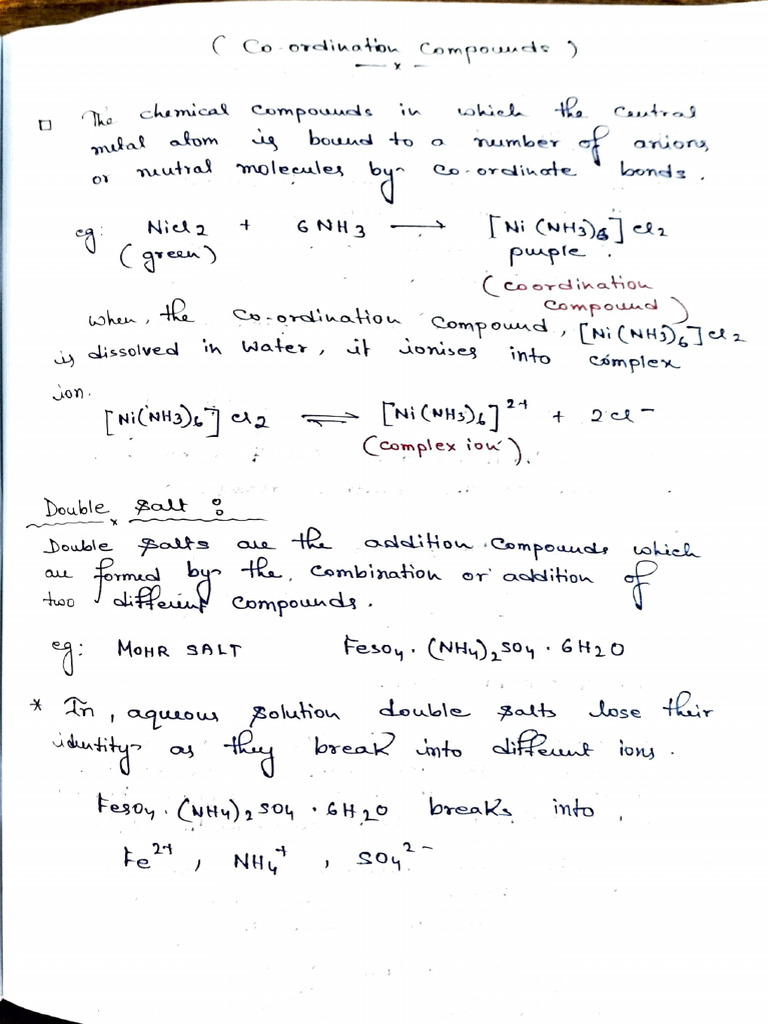 ( Co-ordination Compounds )
— x —
□ The chemical compounds in which the central
metal atom is bound to a number of anions,
or neutral molecules by co-ordinate bonds.
eg: NiCl2 + 6NH3 → [Ni(NH3)6]Cl2
(green) purple.
(coordination
compound)
when, the co-ordination compound, [Ni(NH3)6]Cl2
is dissolved in water, it ionises into complex
ion.
[Ni(NH3)6]Cl2 ⇌ [Ni(NH3)6]2+ + 2Cl-
(complex ion).
Double Salt :
Double Salts are the addition compounds which
are formed by the combination or addition of
two different compounds.
eg: MOHR SALT FeSO4.(NH4)2SO4.6H2O
* In, aqueous solution double salts lose their
identity as they break into different ions.
FeSO4.(NH4)2SO4.6H2O breaks into,
Fe2+, NH4+, SO42-